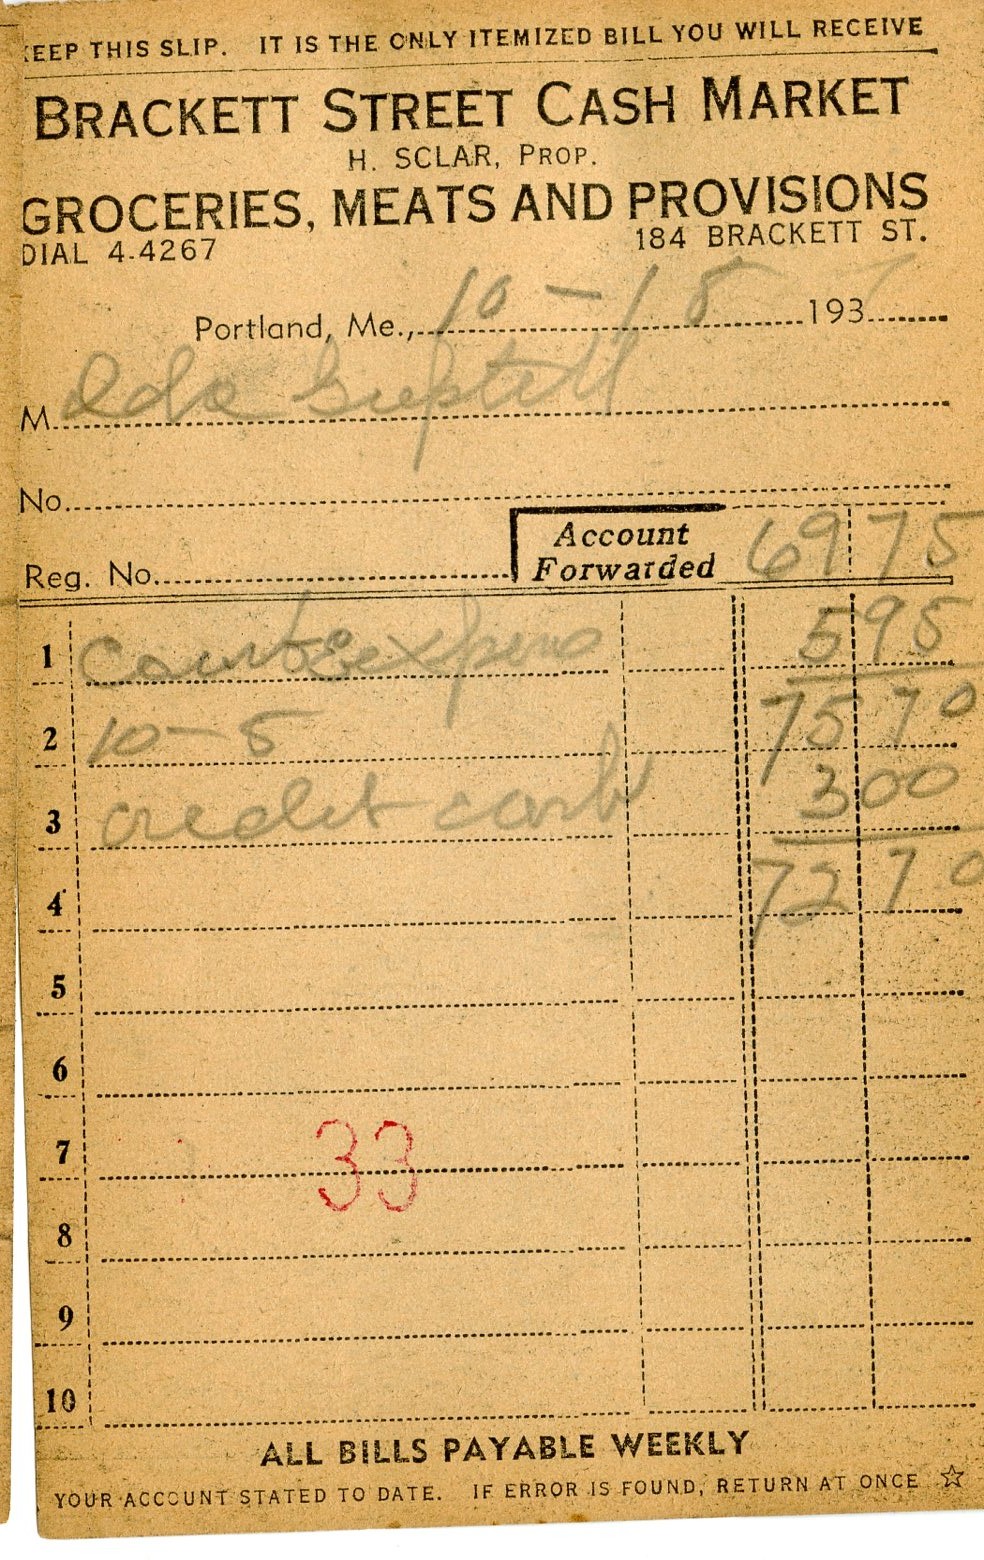 KEEP THIS SLIP. IT IS THE ONLY ITEMIZED BILL YOU WILL RECEIVE
BRACKETT STREET CASH MARKET
H. SCLAR, PROP.
GROCERIES, MEATS AND PROVISIONS
DIAL 4-4267 184 BRACKETT ST.
Portland, Me., 10-18 1937
M. Ida
No.
Account
Forwarded 69 75
Reg. No.
1 Court Expens 5 95
2 10-5 75 70
3 credit cash 3 00
4 72 70
5
6
7
33
8
9
10
ALL BILLS PAYABLE WEEKLY
YOUR ACCOUNT STATED TO DATE. IF ERROR IS FOUND, RETURN AT ONCE ☆